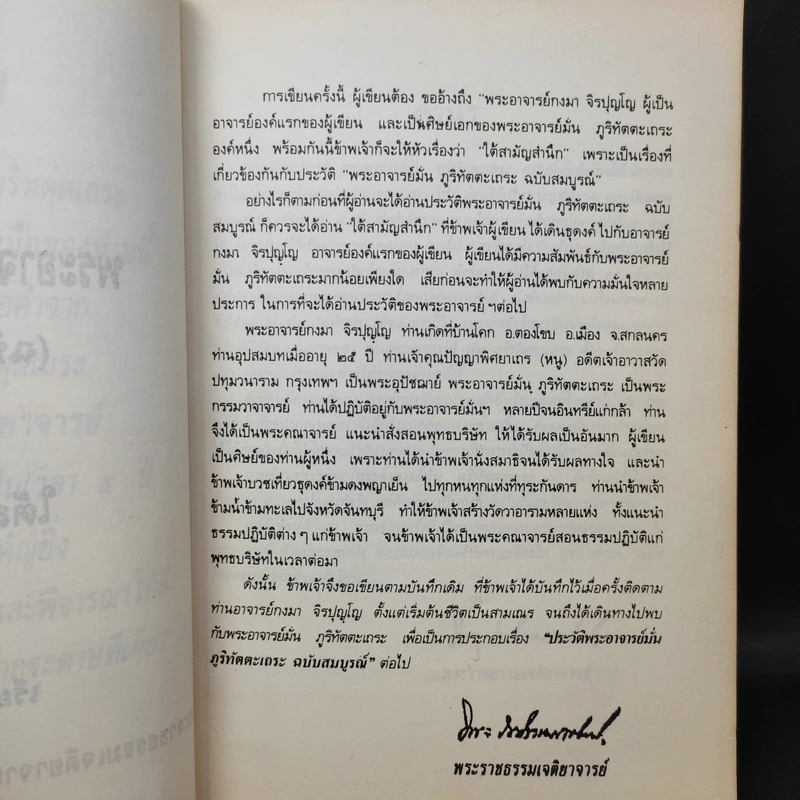 การเขียนครั้งนี้ ผู้เขียนต้อง ขออ้างถึง "พระอาจารย์กงมา จิรปุญโญ ผู้เป็น
อาจารย์องค์แรกของผู้เขียน และเป็นศิษย์เอกของพระอาจารย์มั่น ภูริทัตตะเถระ
องค์หนึ่ง พร้อมกันนี้ข้าพเจ้าก็จะให้หัวเรื่องว่า "ใต้สามัญสำนึก" เพราะเป็นเรื่องที่
เกี่ยวข้องกันกับประวัติ "พระอาจารย์มั่น ภูริทัตตะเถระ ฉบับสมบูรณ์"
อย่างไรก็ตามก่อนที่ผู้อ่านจะได้อ่านประวัติพระอาจารย์มั่น ภูริทัตตะเถระ ฉบับ
สมบูรณ์ ก็ควรจะได้อ่าน "ใต้สามัญสำนึก" ที่ข้าพเจ้าผู้เขียน ได้เดินธุดงค์ ไปกับอาจารย์
กงมา จิรปุญโญ อาจารย์องค์แรกของผู้เขียน ผู้เขียนได้มีความสัมพันธ์กับพระอาจารย์
มั่น ภูริทัตตะเถระมากน้อยเพียงใด เสียก่อนจะทำให้ผู้อ่านได้พบกับความมั่นใจหลาย
ประการ ในการที่จะได้อ่านประวัติของพระอาจารย์ ฯต่อไป
พระอาจารย์กงมา จิรปุญโญ ท่านเกิดที่บ้านโคก อ.ตองโขบ อ.เมือง จ.สกลนคร
ท่านอุปสมบทเมื่ออายุ ๒๕ ปี ท่านเจ้าคุณปัญญาพิศยาเถร (หนู) อดีตเจ้าอาวาสวัด
ปทุมวนาราม กรุงเทพฯ เป็นพระอุปัชฌาย์ พระอาจารย์มั่น ภูริทัตตะเถระ เป็นพระ
กรรมวาจาจารย์ ท่านได้ปฏิบัติอยู่กับพระอาจารย์มั่นฯ หลายปีจนอินทรีย์แก่กล้า ท่าน
จึงได้เป็นพระคณาจารย์ แนะนำสั่งสอนพุทธบริษัท ให้ได้รับผลเป็นอันมาก ผู้เขียน
เป็นศิษย์ของท่านผู้หนึ่ง เพราะท่านได้นำข้าพเจ้านั่งสมาธิจนได้รับผลทางใจ และนำ
ข้าพเจ้าบวชเที่ยวธุดงค์ข้ามดงพญาเย็น ไปทุกหนทุกแห่งที่ทุระกันดาร ท่านนำข้าพเจ้า
ข้ามน้ำข้ามทะเลไปจังหวัดจันทบุรี ทำให้ข้าพเจ้าสร้างวัดวาอารามหลายแห่ง ทั้งแนะนำ
ธรรมปฏิบัติต่าง ๆ แก่ข้าพเจ้า จนข้าพเจ้าได้เป็นพระคณาจารย์สอนธรรมปฏิบัติแก่
พุทธบริษัทในเวลาต่อมา
ดังนั้น ข้าพเจ้าจึงขอเขียนตามบันทึกเดิม ที่ข้าพเจ้าได้บันทึกไว้เมื่อครั้งติดตาม
ท่านอาจารย์กงมา จิรปุญโญ ตั้งแต่เริ่มต้นชีวิตเป็นสามเณร จนถึงได้เดินทางไปพบ
กับพระอาจารย์มั่น ภูริทัตตะเถระ เพื่อเป็นการประกอบเรื่อง "ประวัติพระอาจารย์มั่น
ภูริทัตตะเถระ ฉบับสมบูรณ์" ต่อไป
พระราชธรรมเจติยาจารย์